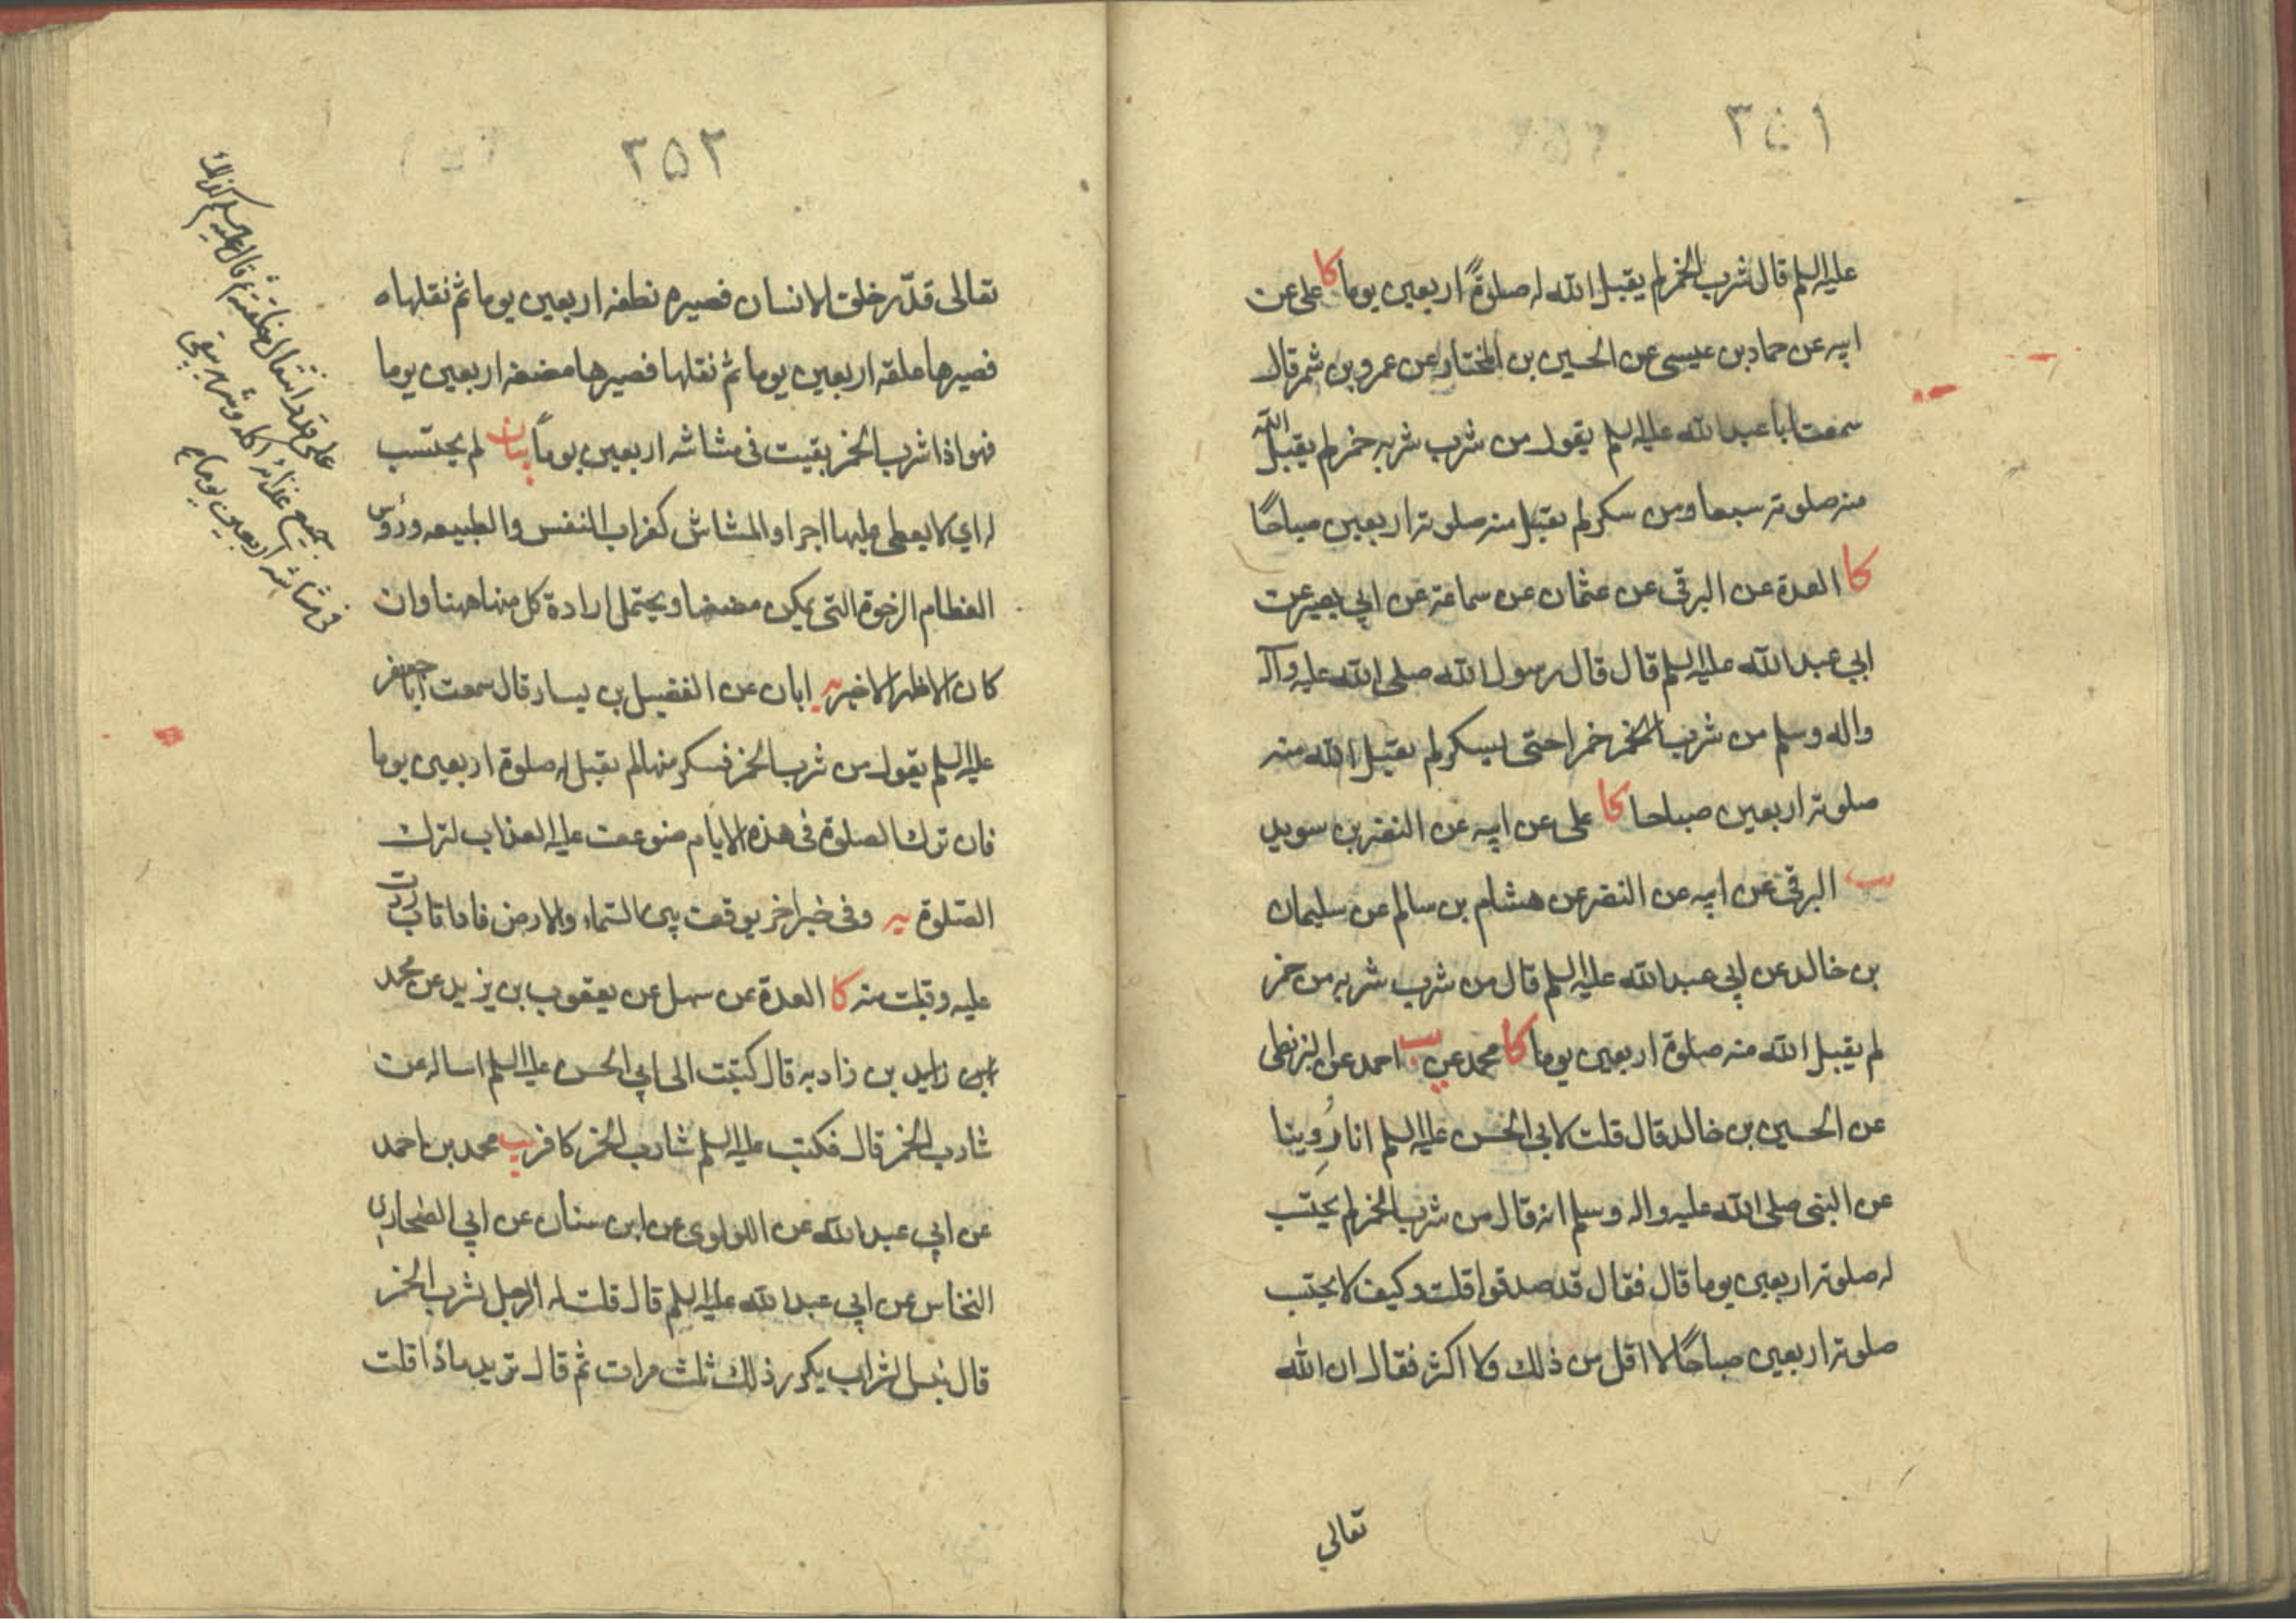 ٣٥١
عليه السلم قال شرب الخمر لم يقبل الله له صلوةً اربعين يوما كا على عن
ابيه عن حماد بن عيسى عن الحسين بن المختار عن عمرو بن شمر قال
سمعت ابا عبد الله عليه السلم يقول من شرب شربه خمر لم يقبل الله
منه صلوته سبعا ومن سكر لم يقبل منه صلوته اربعين صباحًا
كا العدة عن البرقى عن عثمان عن سماعة عن ابي بصير عن
ابي عبد الله عليه السلم قال قال رسول الله صلى الله عليه وآله
واله وسلم من شرب الخمر خمرا حتى يسكر لم يقبل الله منه
صلوته اربعين صباحا كا على عن ابيه عن النضر بن سويد
يب البرقى عن ابيه عن النضر عن هشام بن سالم عن سليمان
بن خالد عن ابي عبد الله عليه السلم قال من شرب شربه من خمر
لم يقبل الله منه صلوة اربعين يوما كا محمد عن يب احمد عن البزنطى
عن الحسين بن خالد قال قلت لابى الحسن عليه السلم انا رُوِينا
عن النبى صلى الله عليه واله وسلم انه قال من شرب الخمر لم يحتسب
له صلوته اربعين يوما قال فقال قد صدقوا قلت وكيف لا يحتسب
صلوته اربعين صباحًا لا اقل من ذلك ولا اكثر فقال ان الله
تعالي
٣٥٢
تعالى قدّر خلق الانسان فصيره نطفه اربعين يوما ثم نقلها ه
فصيرها علقه اربعين يوما ثم نقلها فصيرها مضغه اربعين يوما
فهو اذا شرب الخمر بقيت فى مشاشه اربعين يوماً بيان لم يحتسب
له اي لا يعطى عليها اجرا والمشاش كغراب النفس والطبيعه ورؤس
العظام الرخوة التى يمكن مضغها ويحتمل ارادة كل منها ههنا وان
كان الاظهر الاخير يه ابان عن الفضيل بن يسار قال سمعت ابا جعفر
عليه السلم يقول من شرب الخمر فسكر منها لم يقبل له صلوة اربعين يوما
فان ترك الصلوة فى هذه الايام ضوعفت عليه العذاب لترك
الصّلوة يه وفى خبر اخر يوقفت بين السّماء والارض فاذا تاب ردت
عليه وقبلت منه كا العدة عن سهل عن يعقوب بن يزيد عن محمد
ابن زايد بن زادبه قال كتبت الى ابي الحسن عليه السلم اساله عن
شارب الخمر قال فكتب عليه السلم شارب الخمر كافر يب محمد بن احمد
عن ابي عبد الله عن اللؤلوى عن ابن سنان عن ابي الصحارى
النخاس عن ابي عبد الله عليه السلم قال قلت له الرجل شرب الخمر
قال بئس الشراب يكرر ذلك ثلث مرات ثم قال تريد ماذا قلت
على قدر انتقال خلقته ثم قال عليه السلم كذلك
جميع غذائه اكله وشربه يبقى
فى مشاشه اربعين يوما